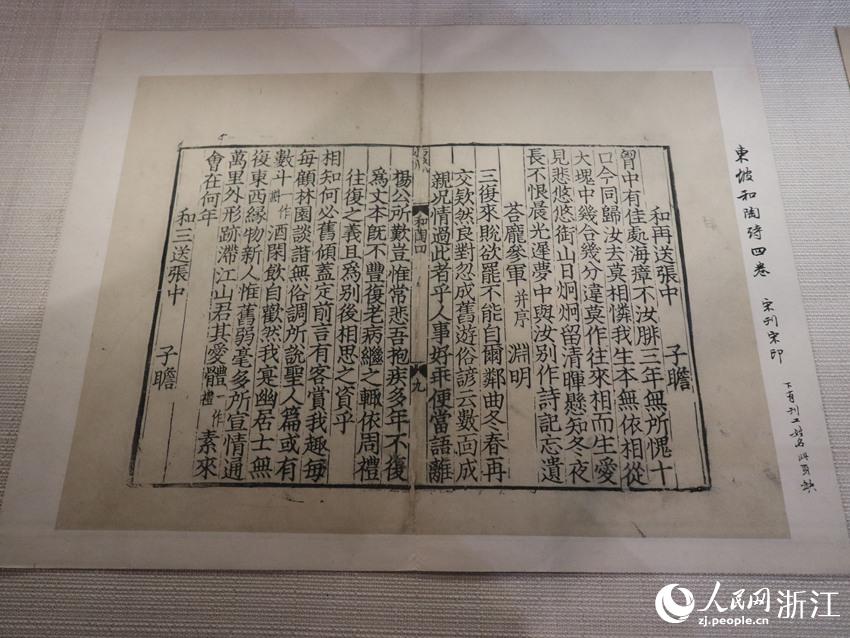 東坡和陶詩四卷 宋刊宋印
下有刊工姓名
和再送張中 子瞻
胷中有佳處海瘴不汝腓三年無所愧十
口今同歸汝去莫相憐我生本無依相從
大塊中幾合幾分違莫作往來相而生愛
見悲悠悠銜山日炯炯留清暉懸知冬夜
長不恨晨光遲夢中與汝別作詩記忘遺
荅龐參軍 并序 淵明
三復來貺欲罷不能自爾鄰曲冬春再
交欵然良對忽成舊遊俗諺云數面成
親況情過此者乎人事好乖便當語離
和陶四
九
楊公所歎豈惟常悲吾抱疾多年不復
為文本既不豐復老病繼之輙依周禮
往復之義且為別後相思之資乎
相知何必舊傾蓋定前言有客賞我趣每
每顧林園談諧無俗調所說聖人篇或有
數斗一作酒閑飲自歡然我寔幽居士無
復東西緣物新人惟舊弱毫多所宣情通
萬里外形跡滯江山君其愛體一作禮素來
會在何年
和三送張中 子瞻
人民网 浙江
zj.people.cn